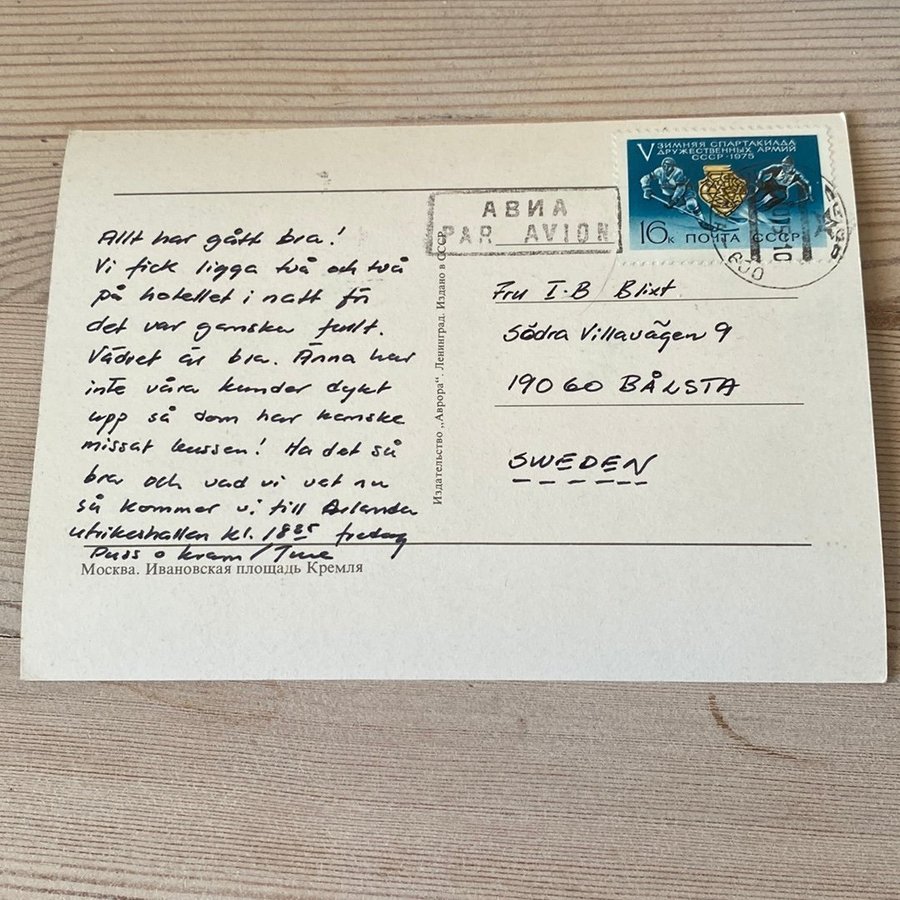 V ЗИМНЯЯ СПАРТАКИАДА
ДРУЖЕСТВЕННЫХ АРМИЙ
СССР·1975
16к ПОЧТА СССР
АВИА
PAR AVION
Allt har gått bra!
Vi fick ligga två och två
på hotellet i natt för
det var ganska fullt.
Vädret är bra. Ännu har
inte våra kunder dykt
upp så dom har kanske
missat bussen! Ha det så
bra och vad vi vet nu
så kommer vi till Arlanda
utrikeshallen kl. 18 fredag
Puss o kram/Ture
Москва. Ивановская площадь Кремля
Издательство „Аврора“. Ленинград. Издано в СССР
Fru I-B Blixt
Södra Villavägen 9
190 60 BÅLSTA
SWEDEN